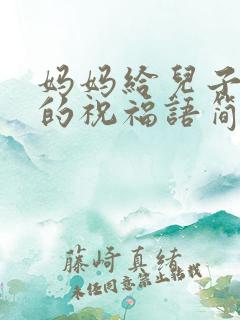 妈妈給兒子
的祝福語简
藤崎真緒
未经同意禁止转载